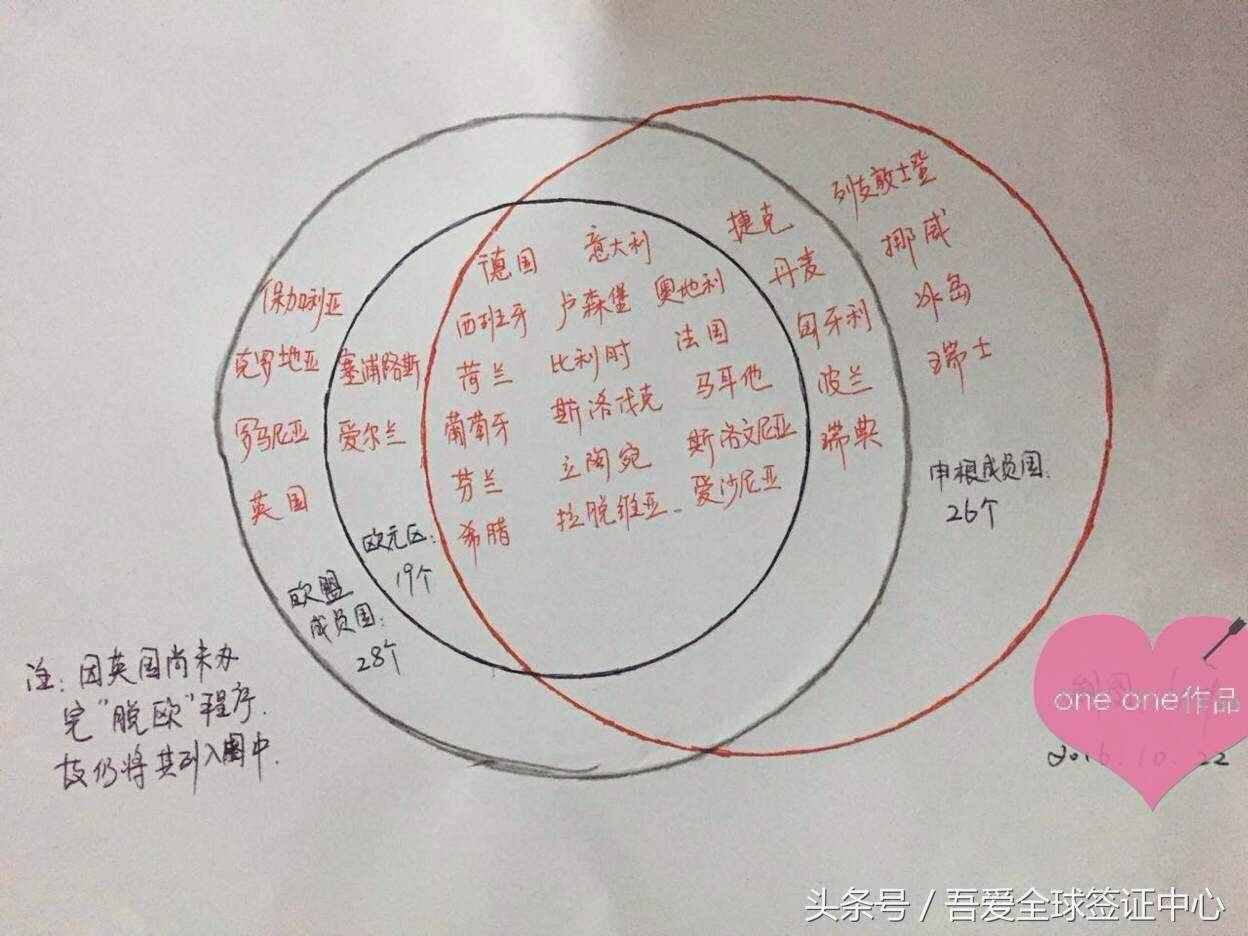 列支敦士登
挪威
冰岛
瑞士
申根成员国:
26个
捷克
丹麦
匈牙利
波兰
瑞典
德国 意大利
西班牙 卢森堡 奥地利
荷兰 比利时 法国
葡萄牙 斯洛伐克 马耳他
芬兰 立陶宛 斯洛文尼亚
希腊 拉脱维亚 爱沙尼亚
保加利亚
克罗地亚 塞浦路斯
罗马尼亚 爱尔兰
英国
欧元区:
19个
欧盟
成员国:
28个
注:因英国尚未办
完“脱欧”程序.
故仍将其列入图中.
one one作品
2016.10.22
头条号/吾爱全球签证中心